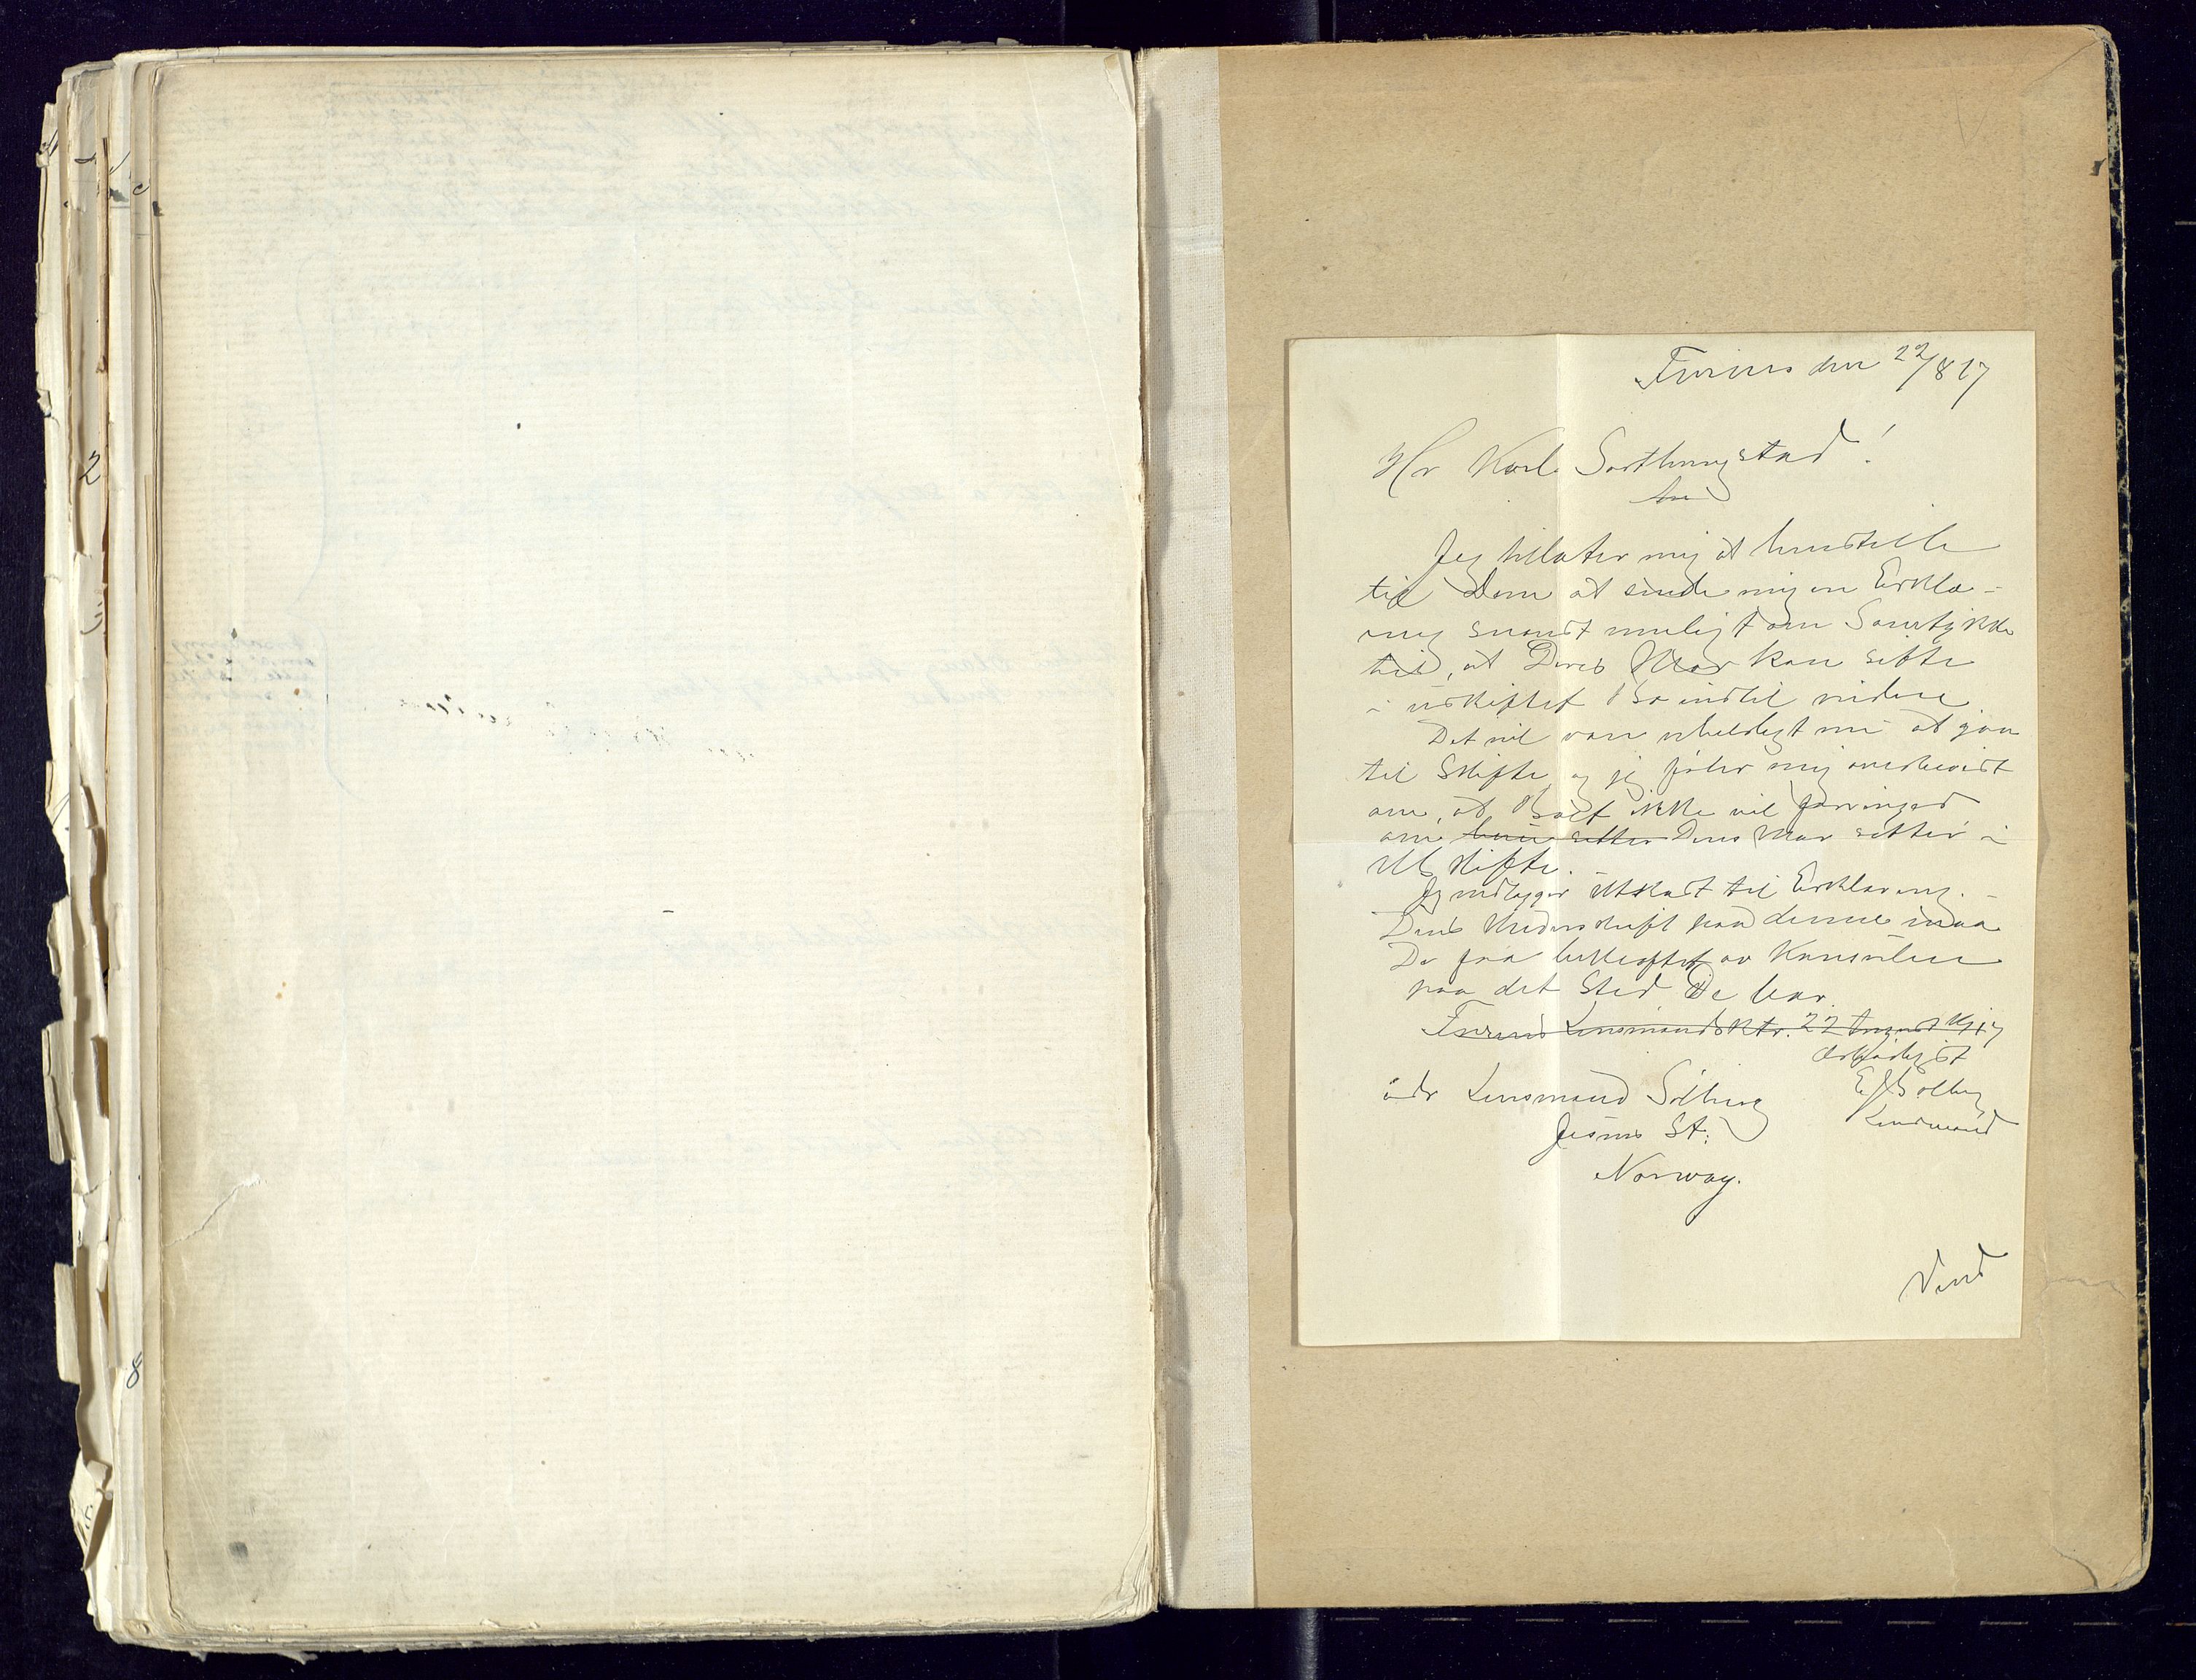 Furnes den 22/8 17
Hr Karl Sorthungstad!
Jeg tillater mig at henstille
til Dem at sende mig en Erklæ-
ring snarest muligt om Samtykke
til, at Deres Mor kan sitte
i uskiftet Bo indtil videre
Det vil være uheldigt nu at gaa
til Skifte, og jeg føler mig overbevist
om, at Boet ikke vil forringes
om hun sitter Deres Mor sitter i
Uskifte.
Jeg vedlægger Utkast til Erklæring. -
Deres Underskrift paa denne maa
De faa bekræftet av Konsulen
paa det Sted De bor.
Furnes Lensmandsktr. 22 August 1917
Ærbødigst
adr Lensmand Solberg
E Solberg
Lensmand
Jesnes St.
Norway.
Vend
2
8